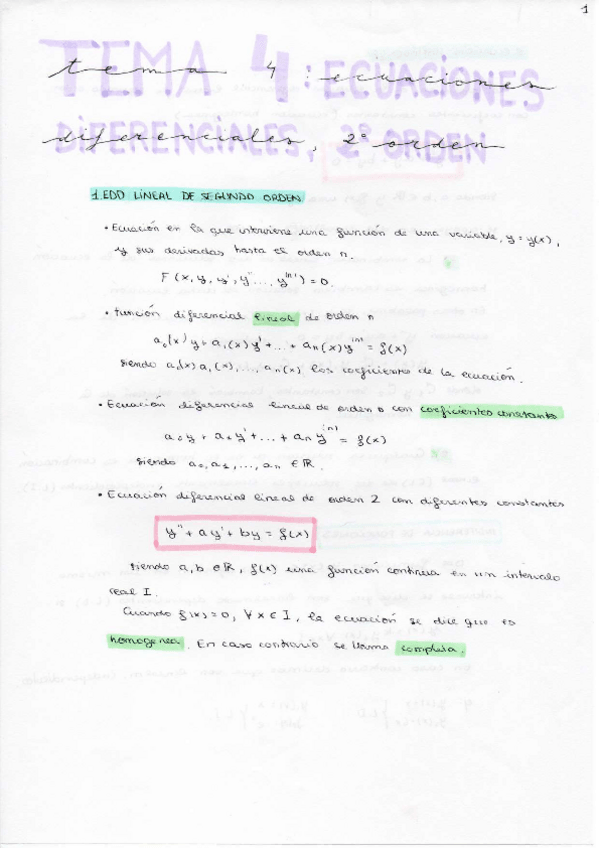 1
tema 4: ecuaciones
diferenciales, 2º orden
1. EDO LINEAL DE SEGUNDO ORDEN
• Ecuación en la que interviene una función de una variable, y = y(x),
y sus derivadas hasta el orden n.
F(x, y, y', y'', ..., y⁽ⁿ⁾) = 0.
• función diferencial lineal de orden n
a₀(x) y + a₁(x) y' + ... + aₙ(x) y⁽ⁿ⁾ = f(x)
siendo a₀(x) a₁(x), ..., aₙ(x) los coeficientes de la ecuación.
• Ecuación diferencial lineal de orden n con coeficientes constantes
a₀y + a₁y' + ... + aₙ y⁽ⁿ⁾ = f(x)
siendo a₀, a₁, ..., aₙ ∈ ℝ.
• Ecuación diferencial lineal de orden 2 con diferentes constantes
y'' + ay' + by = f(x)
siendo a, b ∈ ℝ, f(x) una función continua en un intervalo
real I.
Cuando f(x) = 0, ∀ x ∈ I, la ecuación se dice que es
homogénea. En caso contrario se llama completa.